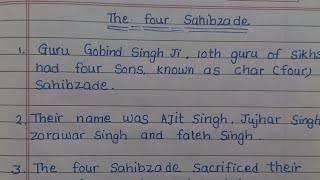 The four Sahibzade.
1. Guru Gobind Singh Ji, 10th guru of Sikhs
had four sons, known as char (four)
Sahibzade.
2. Their name was Ajit Singh, Jujhar Singh
zorawar Singh and fateh Singh.
3. The four Sahibzade sacrificed their